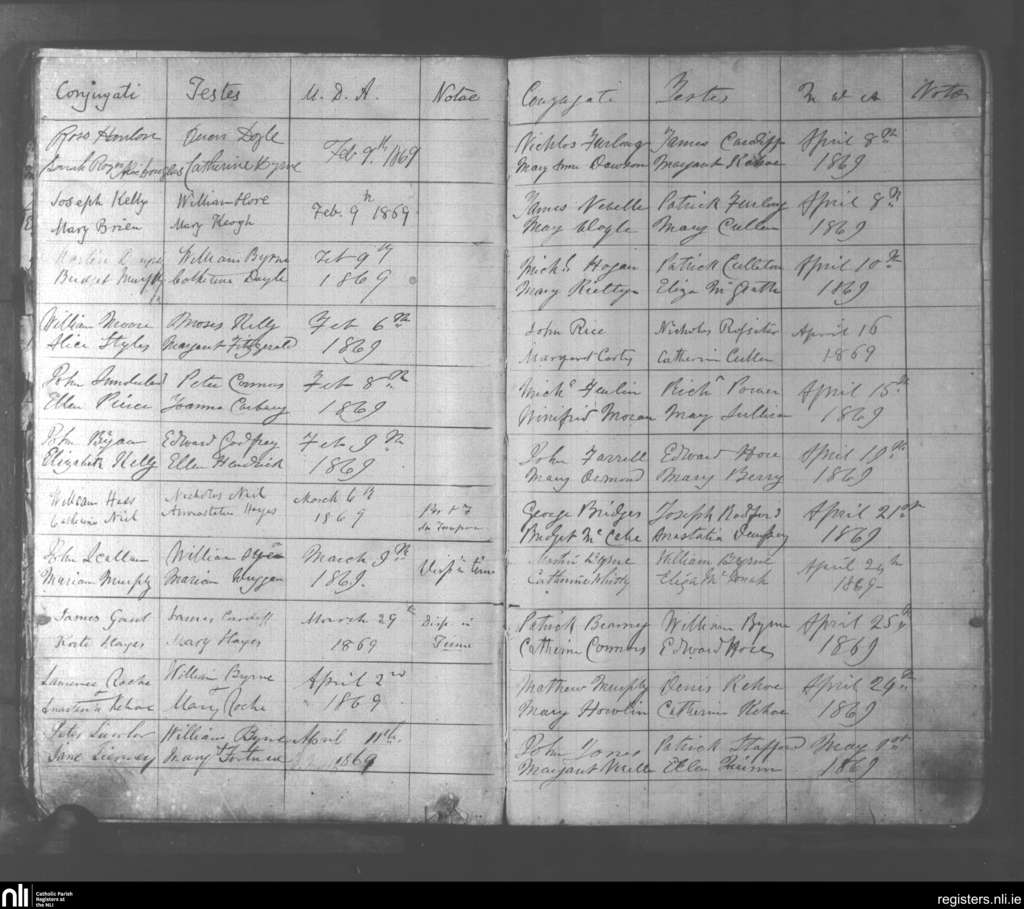 Conjugati Testes M. D. A. Notae
Ross Hanlon Owen Doyle Feb 9th 1869
Sarah Catherine Byrne
Joseph Kelly William Hore Feb. 9th 1869
Mary Brien Mary Keogh
William Byrne Feb 9th
Bridget Murphy Catherine Doyle 1869
William Moore Moses Kelly Feb 6th
Alice Styles Margaret Fitzgerald 1869
John Sunderland Peter Connors Feb 8th
Ellen Pierce Joanna Carberry 1869
John Ryan Edward Godfrey Feb 9th
Elizabeth Kelly Ellen Hendrick 1869
William Hess Nicholas Neil March 6th
Catherine Neil Anastatia Hayes 1869
John Scallan William March 9th Disp in
Marian Murphy Marian Duggan 1869.
James Gaul James Cardiff March 29th Disp in
Kate Hayes Mary Hayes 1869
Laurence Roche William Byrne April 2nd
Kehoe Mary Roche 1869
Peter Lawlor William Byrne April 11th
Jane Tierney Mary Fortune 1869
Conjugati Testes M D A Notae
Nichlos Furlong James Cardiff April 8th
Mary Anne Dawson Margaret Kehoe 1869
James Neville Patrick Furlong April 8th
May Cloyle Mary Cullen 1869
Michl Hogan Patrick Culleton April 10th
Mary Eliza McGrath 1869
John Rice Nicholas Rossiter April 16
Margaret Curtis Catherine Cullen 1869
Michl Richd Power April 15th
Winifrid Moran May Sullivan 1869
John Farrell Edward Hore April 19th
Mary Ormond Mary Berry 1869
George Bridges Joseph Radford April 21st
Bridget McCabe Anastatia Dempsey 1869
Martin Byrne William Byrne April 24th
Catherine Whitty Eliza 1869
Patrick Bearney William Byrne April 25th
Catherine Connors Edward Hore 1869
Mathew Murphy Denis Kehoe April 29th
Mary Howlin Catherine Kehoe 1869
John Jones Patrick Stafford May 1st
Margaret Neville Ellen Quinn 1869
nli Catholic Parish
Registers at
the NLI
registers.nli.ie